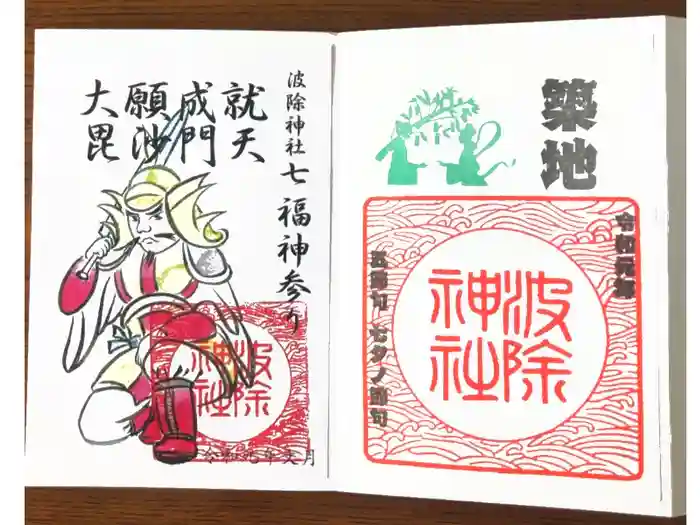 波除神社 七福神参り
就天
成門
願沙
大毘
波除
神社
令和元年文月
築地
令和元年
波除
神社
五節句 七夕ノ節句